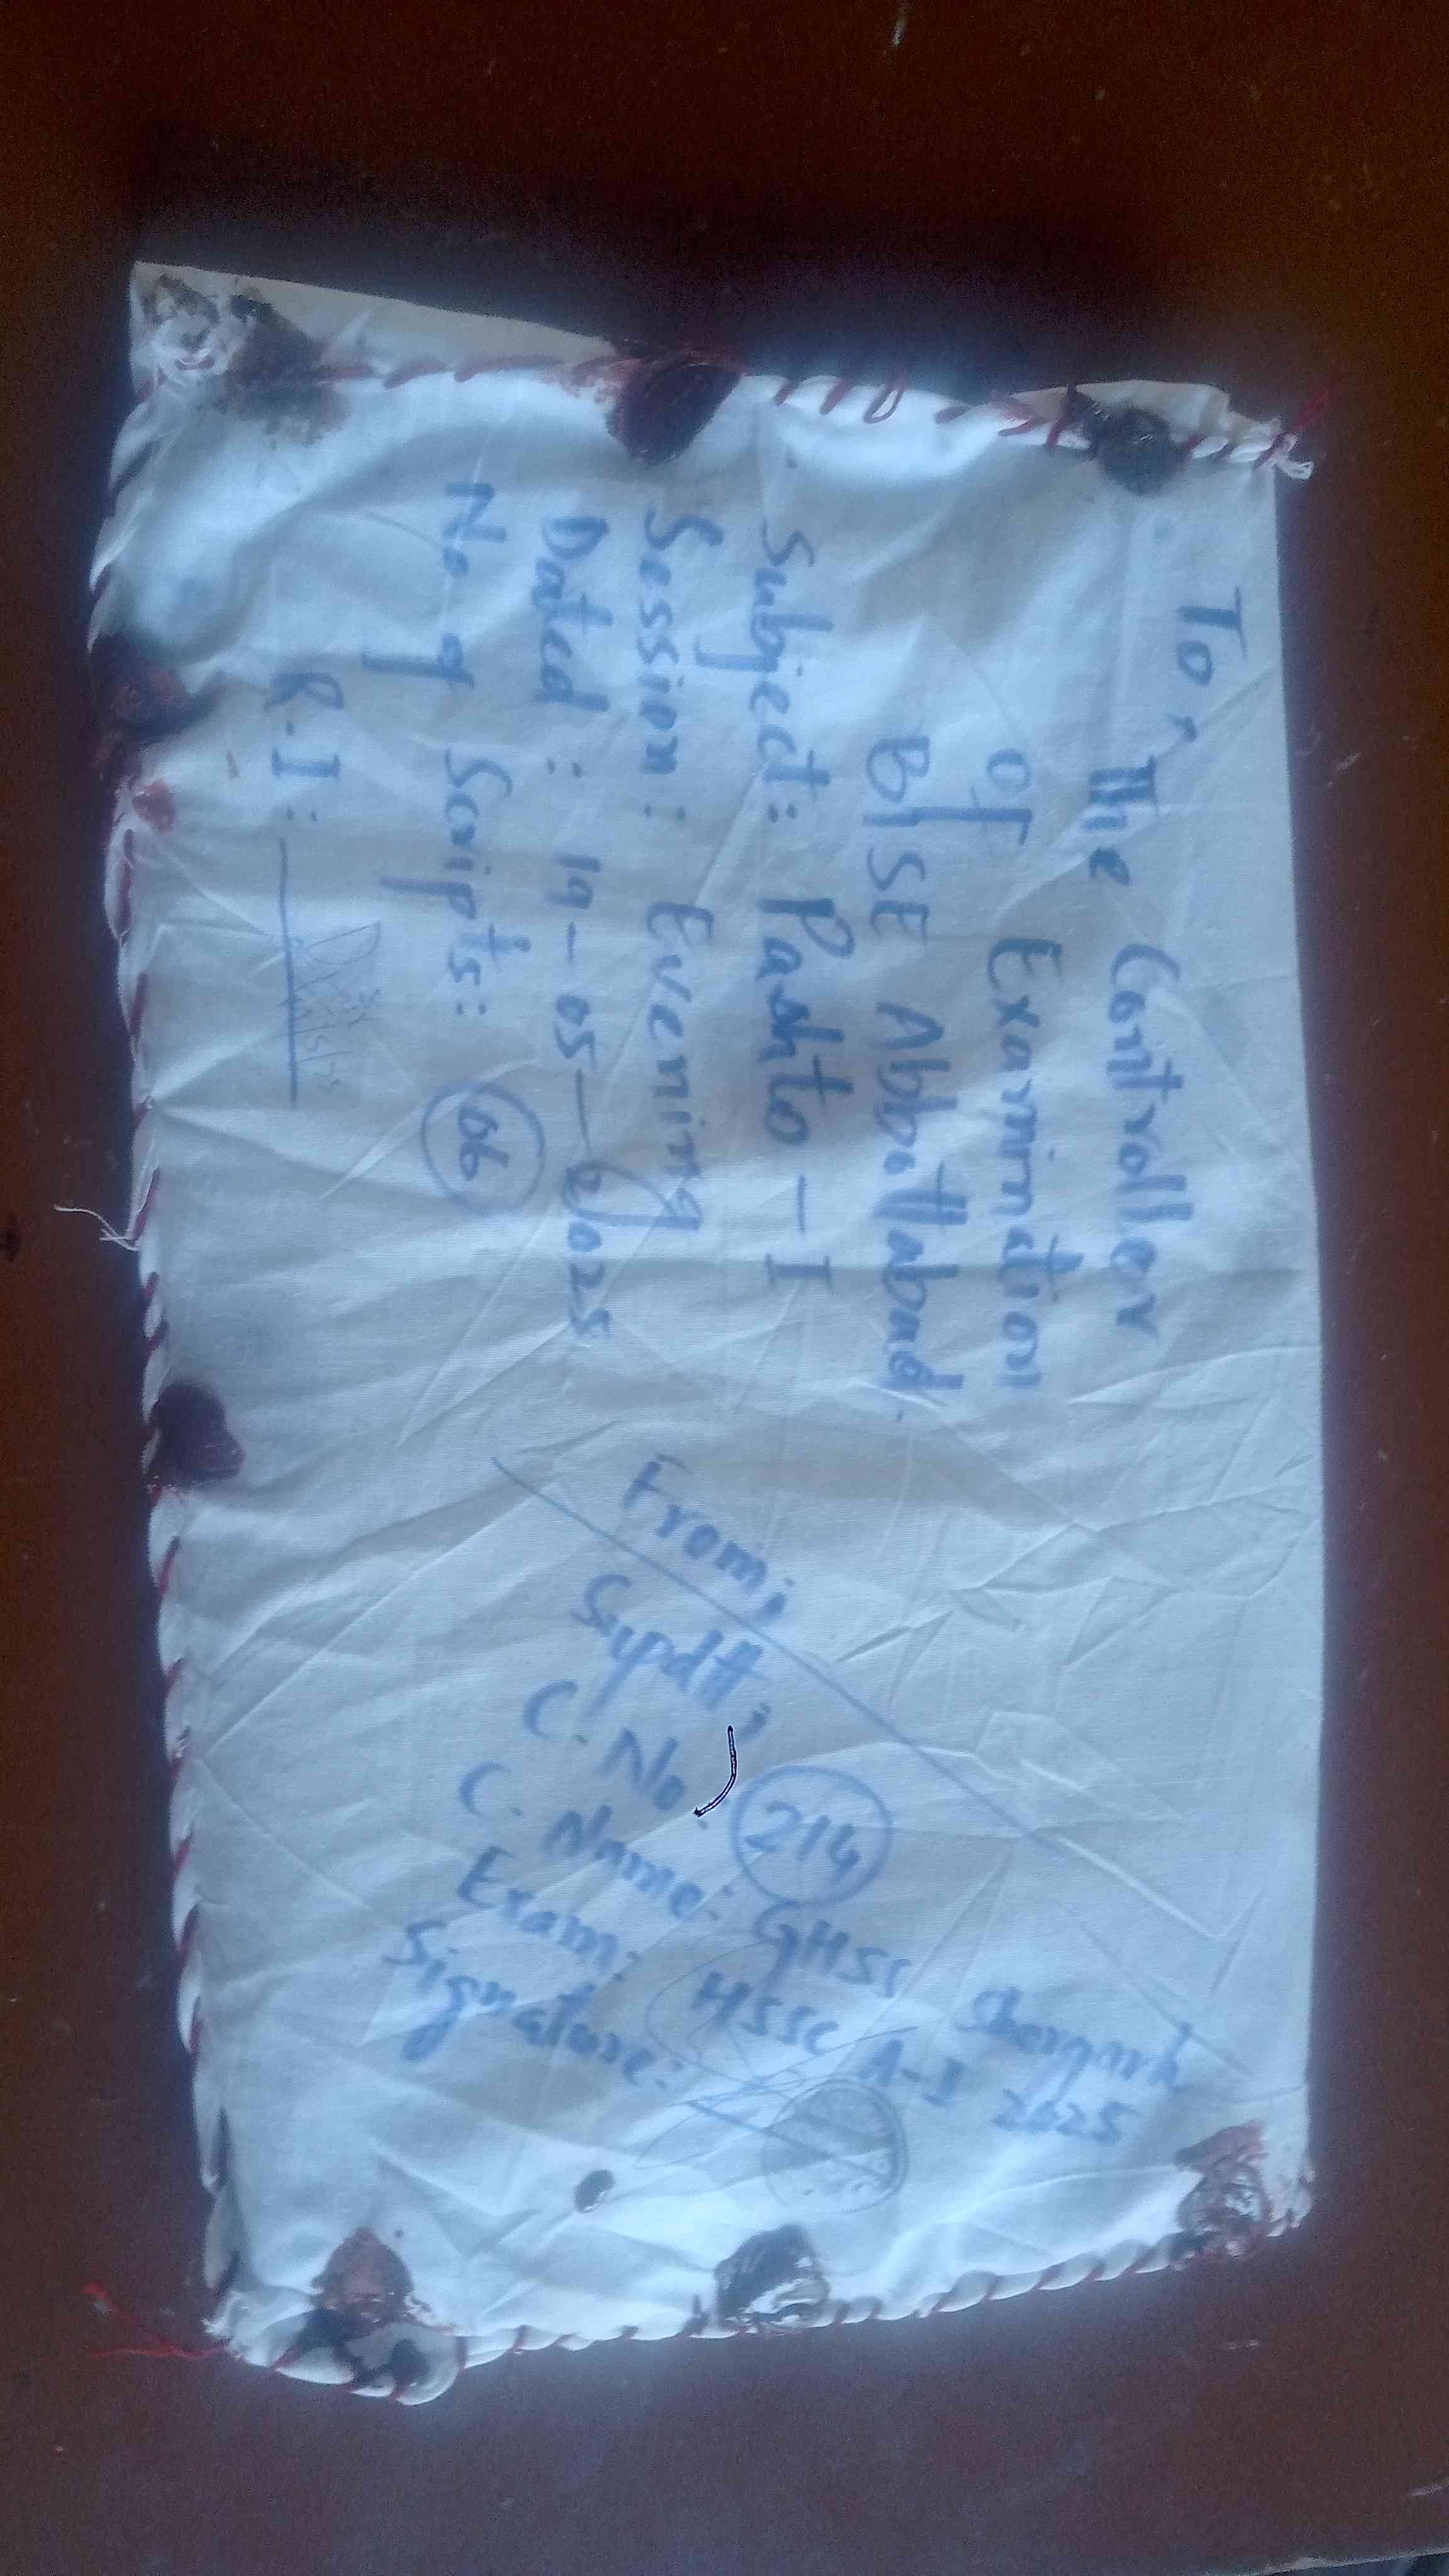 To,
The Controller
of Examination
BISE Abbottabad.
Subject: Pashto - I
Session: Evening
Dated: 19-05-2025
No of Scripts: 06
R.I:
From;
Supdtt;
C. No. 214
C. Name: GHSS Shergarh
Exam: HSSC A-I 2025
Signature: